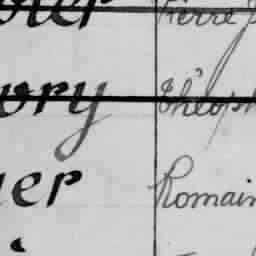 oler Pierre
vory Théoph
uer Romain